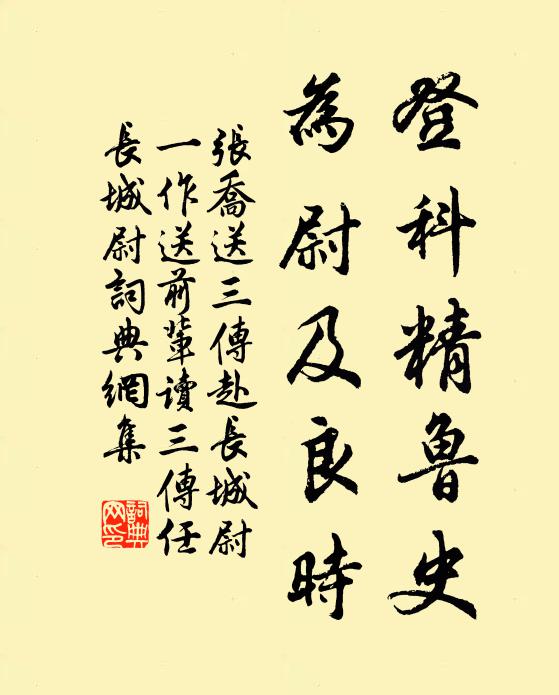 登科精魯史
為尉及良時
張喬送三傳赴長城尉
一作送前輩讀三傳任
長城尉詞典網集
詞典网印